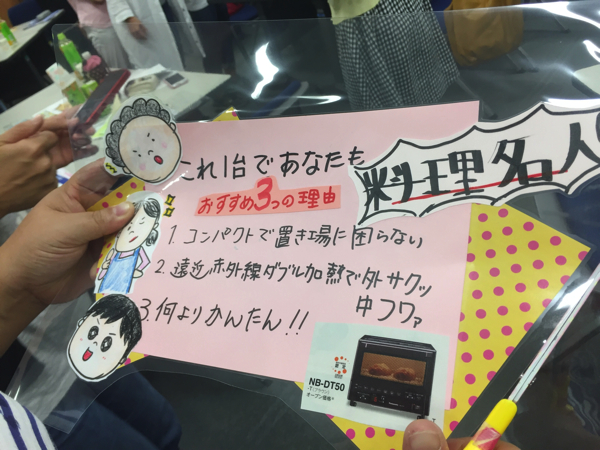 これ1台であなたも
料理名人
おすすめ3つの理由
1. コンパクトで置き場に困らない
2. 遠近赤外線ダブル加熱で外サクッ
中フワァ
3. 何よりかんたん!!
NB-DT50
-T(ブラウン)
オープン価格*